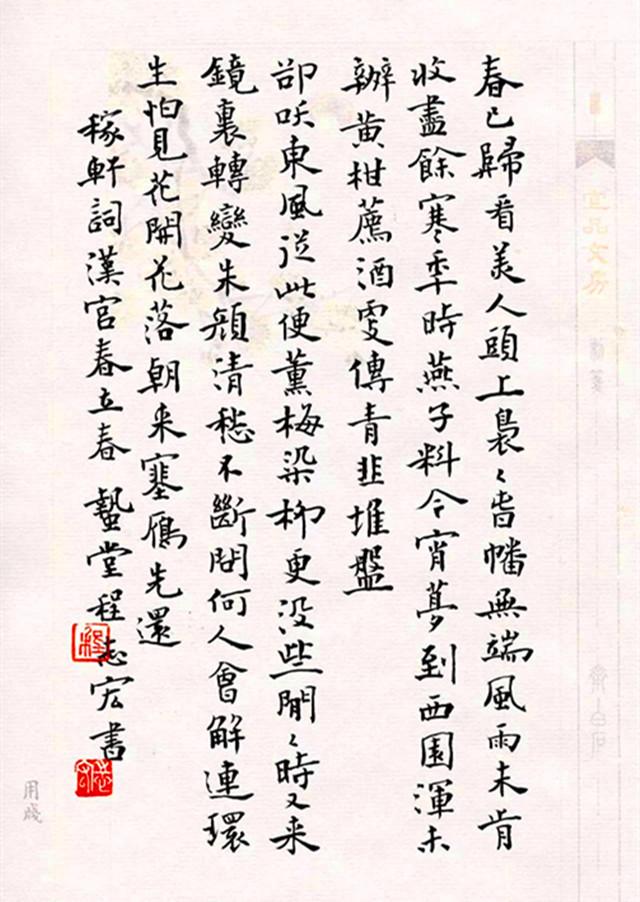 春已歸看美人頭上裊〻旾幡無端風雨未肯
收盡餘寒年時燕子料今宵夢到西園渾未
辦黃柑薦酒更傳青韭堆盤
卻咲東風從此便薰梅染柳更沒些閒〻時又来
鏡裏轉變朱顏清愁不斷問何人會解連環
生怕見花開花落朝来塞鴈先還
稼軒詞漢宮春立春 蟄堂程志宏書
程
用箋